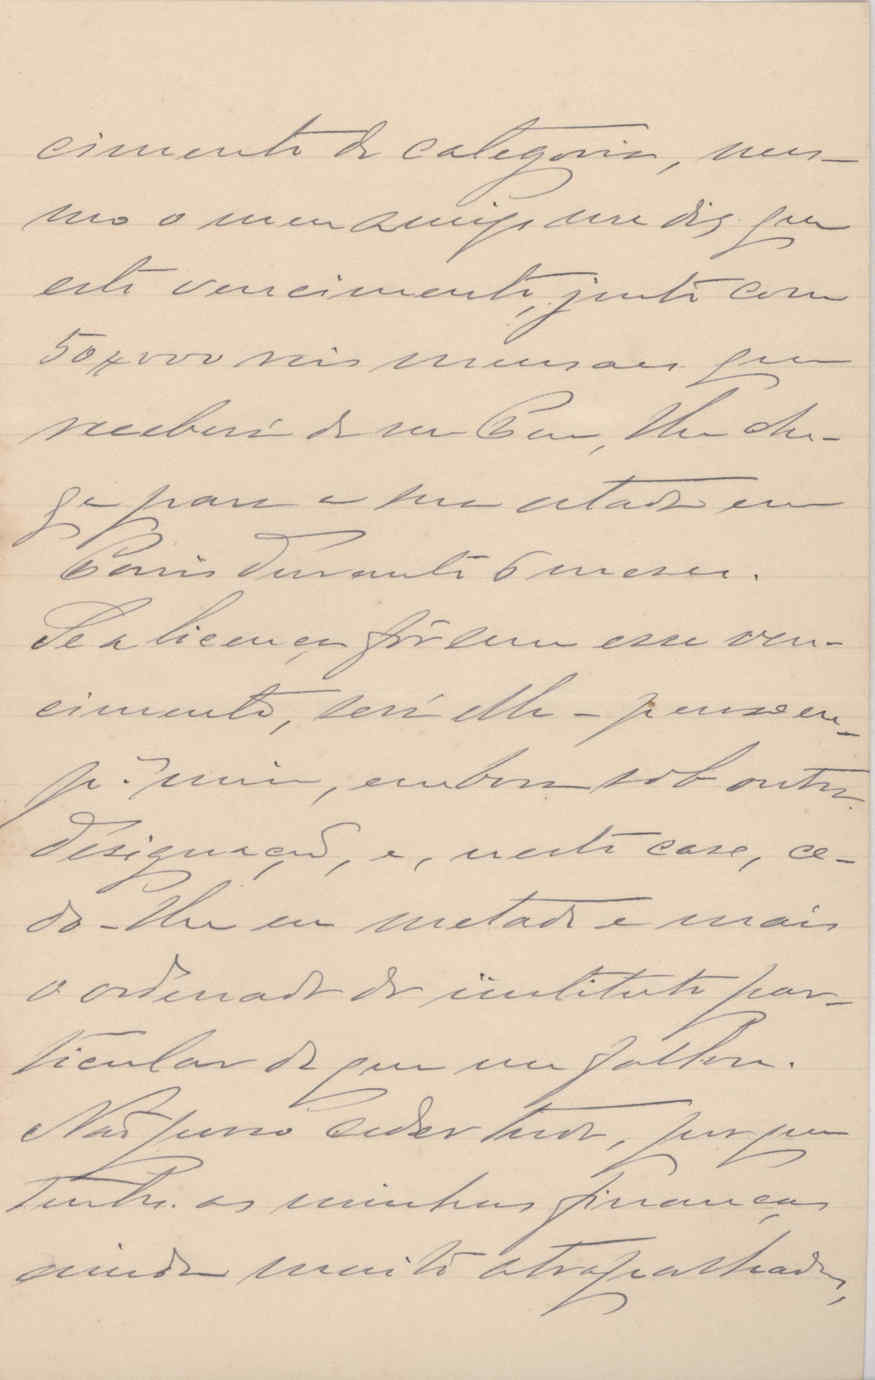 cimento de categoria, mes-
mo o meu amigo me diz que
este vencimento, junto com
50$000 reis mensaes que
receberá de seu Pae, lhe che-
ga para a sua estada em
Paris durante 6 meses.
Se a licença fôr sem esse ven-
cimento, será elle - penso eu -
pª mim, embora sob outra
designação, e, neste caso, ce-
do-lhe eu metade e mais
o ordenado do instituto par-
ticular de que me fallou.
Não posso ceder tudo, porque
tenho as minhas finanças
ainda muito atrapalhadas,